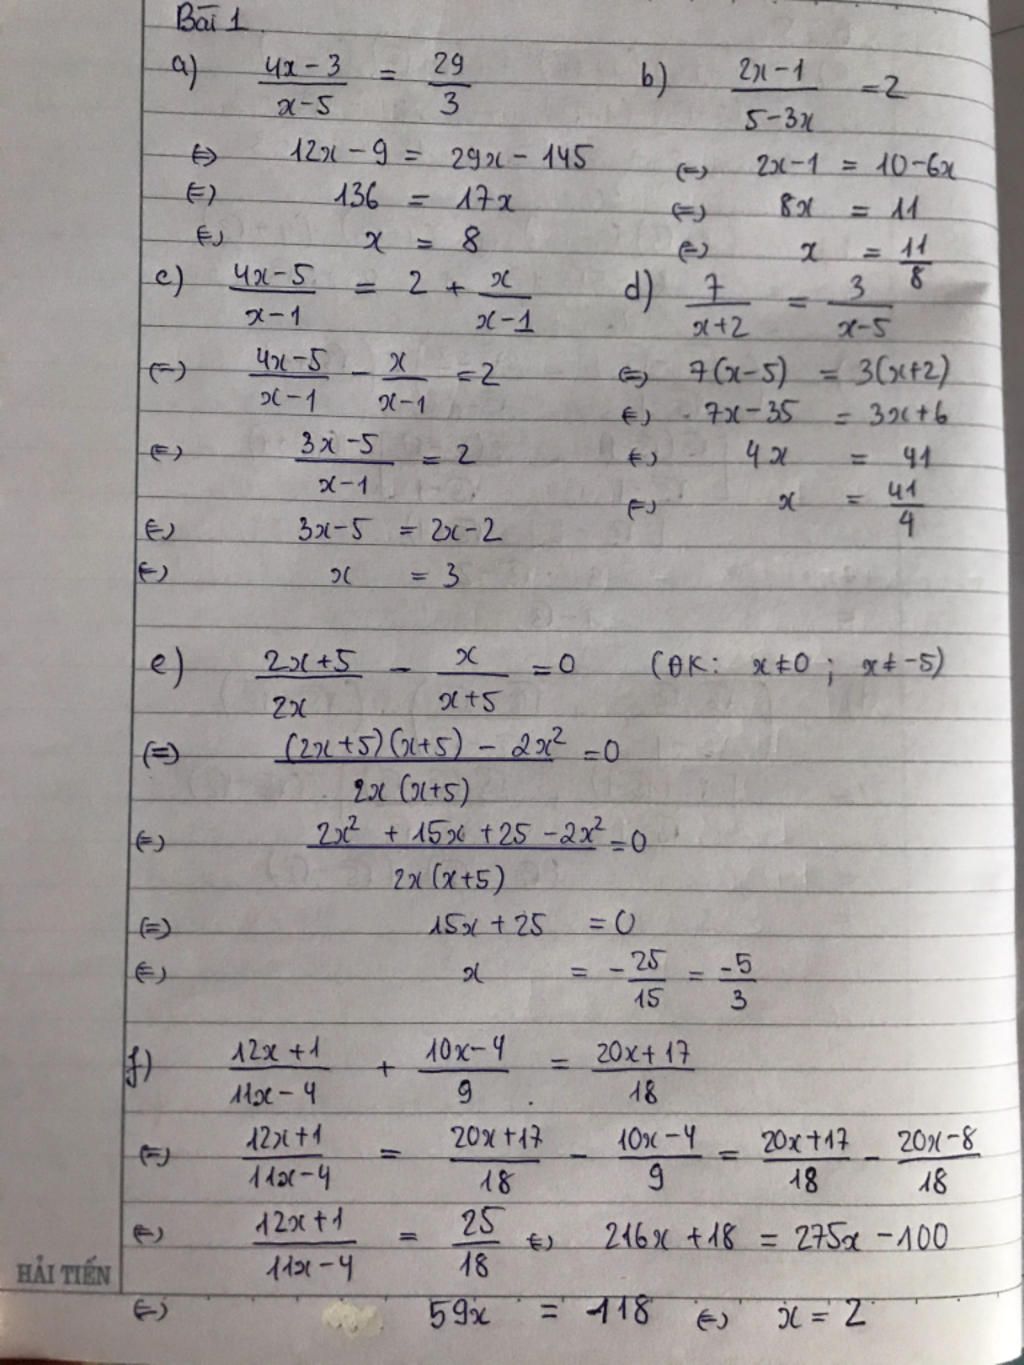 Bài 1.
a) (4x-3)/(x-5) = 29/3
⇔ 12x - 9 = 29x - 145
⇔ 136 = 17x
⇔ x = 8
b) (2x-1)/(5-3x) = 2
⇔ 2x-1 = 10-6x
⇔ 8x = 11
⇔ x = 11/8
c) (4x-5)/(x-1) = 2 + x/(x-1)
⇔ (4x-5)/(x-1) - x/(x-1) = 2
⇔ (3x-5)/(x-1) = 2
⇔ 3x-5 = 2x-2
⇔ x = 3
d) 7/(x+2) = 3/(x-5)
⇔ 7(x-5) = 3(x+2)
⇔ 7x-35 = 3x+6
⇔ 4x = 41
⇔ x = 41/4
e) (2x+5)/(2x) - x/(x+5) = 0 (ĐK: x≠0 ; x≠-5)
⇔ ((2x+5)(x+5) - 2x²)/(2x(x+5)) = 0
⇔ (2x² + 15x + 25 - 2x²)/(2x(x+5)) = 0
⇔ 15x + 25 = 0
⇔ x = -25/15 = -5/3
f) (12x+1)/(11x-4) + (10x-4)/9 = (20x+17)/18
⇔ (12x+1)/(11x-4) = (20x+17)/18 - (10x-4)/9 = (20x+17)/18 - (20x-8)/18
⇔ (12x+1)/(11x-4) = 25/18 ⇔ 216x + 18 = 275x - 100
HẢI TIẾN
⇔ 59x = 118 ⇔ x = 2